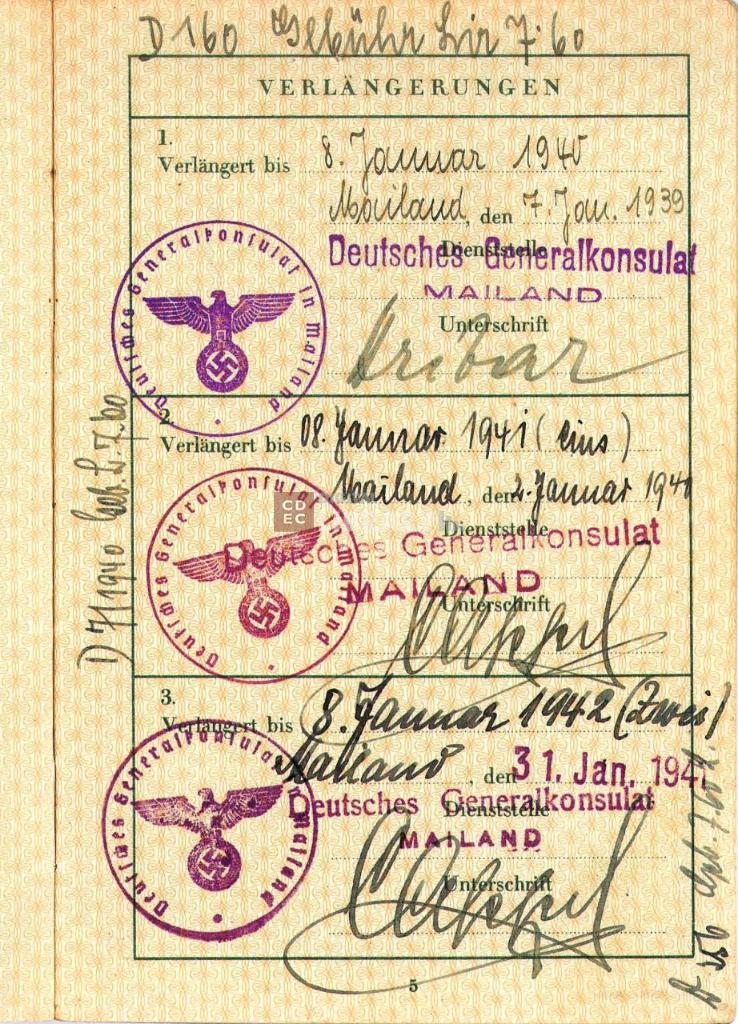 D 160 Gebühr Lir 7.60
VERLÄNGERUNGEN
1.
Verlängert bis 8. Januar 1940
Mailand, den 7. Jan. 1939
Dienststelle
Deutsches Generalkonsulat
MAILAND
Unterschrift
Deutsches Generalkonsulat in Mailand
2.
Verlängert bis 08. Januar 1941 (eins)
Mailand, den 2. Januar 1940
Dienststelle
Deutsches Generalkonsulat
MAILAND
Unterschrift
Deutsches Generalkonsulat in Mailand
CDEC
D 7/1940 Geb. L. 7.60
3.
Verlängert bis 8. Januar 1942 (Zwei)
Mailand, den 31. Jan. 1941
Dienststelle
Deutsches Generalkonsulat
MAILAND
Unterschrift
Deutsches Generalkonsulat in Mailand
5